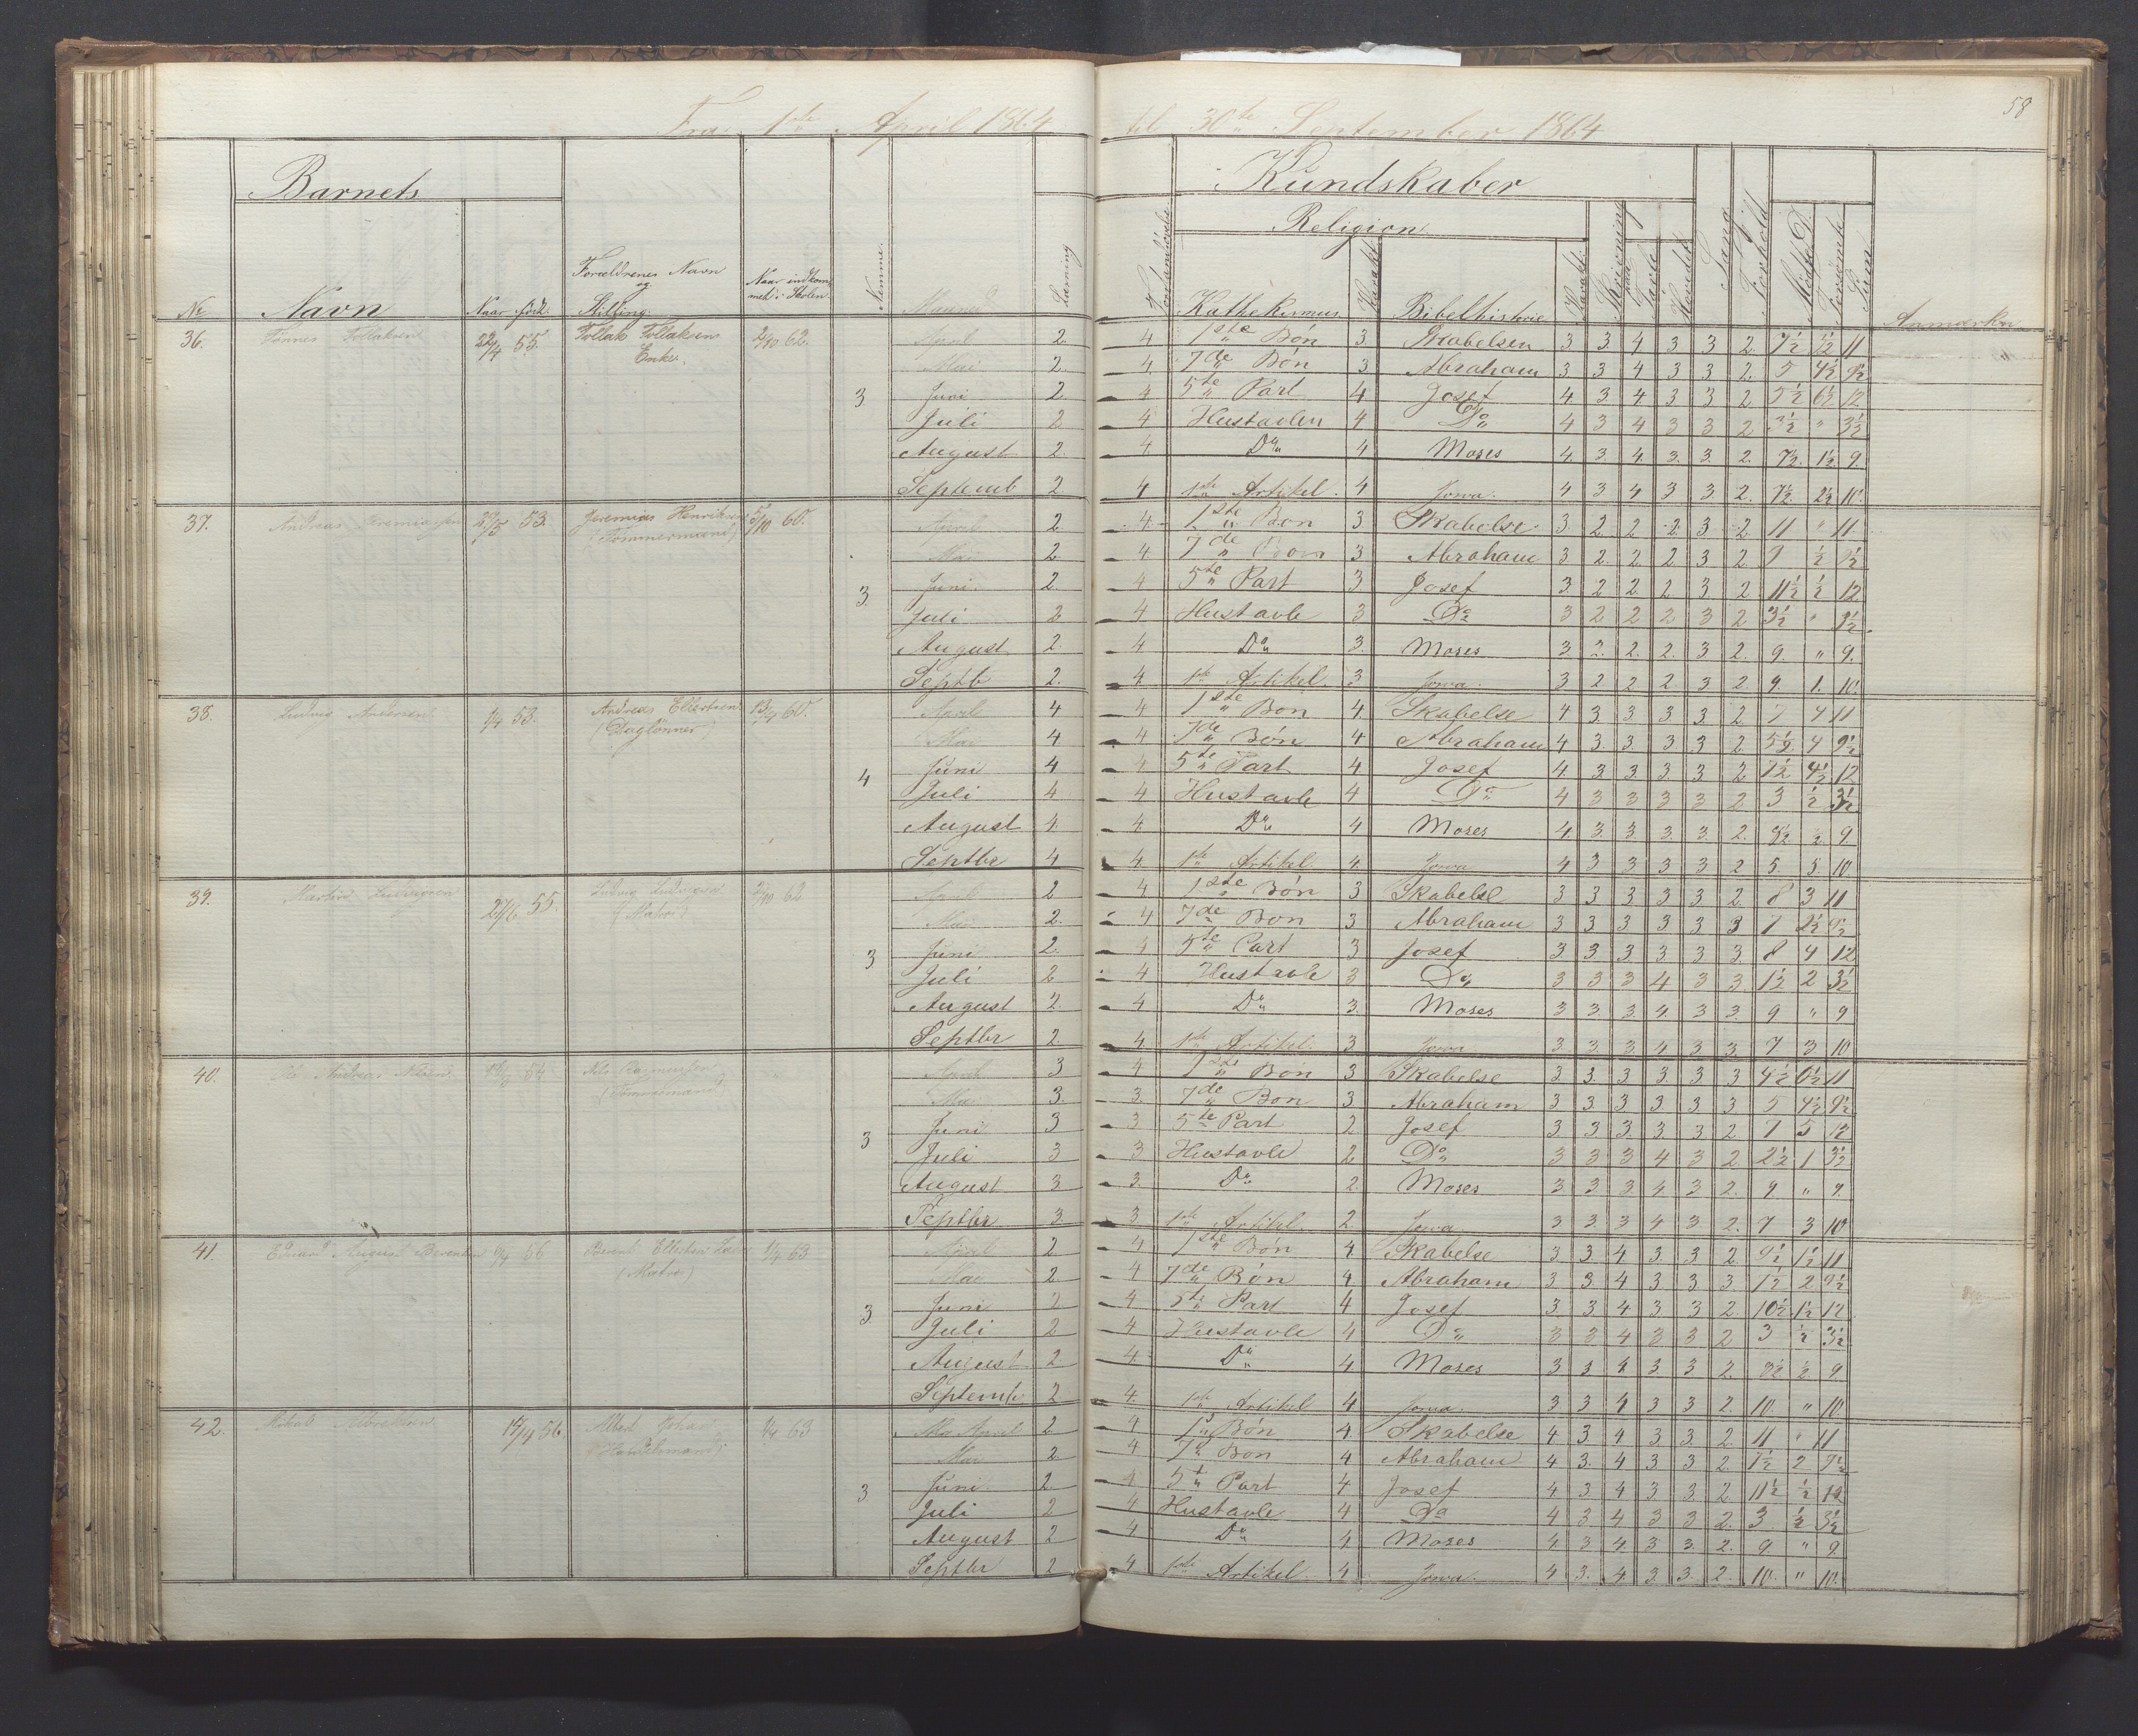 58
Fra 1ste April 1864 til 30te September 1864
Barnets Kundskaber
Religion
No Navn Naar född. Forældrenes Navn og Stilling Naar indkommet i Skolen Nemme Maaned Læsning Forstandsövelse Kathekismus Karakt Bibelhistorie Karakt Skrivning Tavle Hovedet Sang Forhold Mödte D. Forsömte Sum Anmærkn
36. Tönnes Tollaksen 22/4 55. Tollak Tollaksens Enke. 2/10 62. 3
April 2. 4 1ste Bön 3 Skabelsen 3 3. 4 3 3 2. 7½ 3½ 11
Mai 2. 4. 7de Bön 3 Abraham 3 3 4 3 3 2. 5 4½ 9½
Juni 2. 4 5te Part 4 Josef 4. 3 4 3 3 2 5½ 6½ 12
Juli 2 4 Hustavlen 4 Do 4 3 4 3 3 2 3½ " 3½
August 2. 4. Do 4 Moses 4. 3. 4. 3. 3. 2. 7½. 1½ 9.
Septemb 2 4 1ste Artikel. 4 4 3 4 3 3. 2. 7½ 2½ 10.
37. Andreas Jeremiassen 53. Jeremias Henriksen (Tömmermand) 60. 3.
April 2 4 1ste Bön 3 Skabelse 3. 2. 2 2 3 2 11 " 11
Mai 2 4 7de Bön 3 Abraham 3 2. 2. 2 3 2 9 ½ 9½
Juni. 2. 4 5te Part 3 Josef 3 2 2 2 3 2 11½ ½ 12
Juli 2 4 Hustavle 3 Do 3 2 2 2 3 2 3½ " 3½
August 2. 4 Do 3. Moses 3 2. 2. 2. 3 2. 9. " 9.
Septb 2. 4 1ste Artikel. 3 3 2 2 2 3 2. 9. 1. 10.
38. Ludvig Andersen 1/4 53. Andreas (Daglönner) 60. 4
April 4 4 1ste Bön 4 Skabelse 4 3. 3 3 3. 2 7 4 11
Mai 4 4 7de Bön 4 Abraham 4 3. 3. 3 3 2 5½ 4 9½
Juni 4 4 5te Part 4 Josef 4. 3 3. 3. 3 2 7½ 4½ 12
Juli 4 4 Hustavle 4 Do 4 3 3 3 3 2 3 ½ 3½
August 4. 4. Do 4 Moses 4. 3. 3. 3. 3. 2. 8½ ½ 9
Septbr 4 4 1ste Artikel. 4 4 3 3 3 3 2 5. 5 10
39. Martin Ludvigsen 55. Ludvig Ludvigsen (Matros) 2/10 62 3
April 2 4 1ste Bön 3 Skabelse 3 3 3 3 3 2. 8 3 11
Mai 2. 4 7de Bön 3 Abraham 3 3 3 3 3 3 7 2½ 9½
Juni 2. 4 5te Part 3 Josef 3. 3. 3 3 3 3. 8 4 12
Juli 2 4 Hustavle 3 Do 3 3 3 4 3 3. 1½ 2 3½
August 2. 4 Do 3. Moses 3 3. 3. 4 3 3. 9 " 9
Septbr 2. 4 1ste Artikel. 3 3 3. 3 4 3 3. 7 3 10
40. Andreas Nilsen (Tömmermand) 3
April 3 4 1ste Bön 3 Skabelse 3. 3. 3 3. 3 3 4½ 6½ 11
Mai 3. 3. 7de Bön 3 Abraham 3 3 3 3 3 3. 5 4½ 9½
Juni 3 3 5te Part 2 Josef 3 3. 3. 3 3 2 7 5 12
Juli 3 3 Hustavle 2 Do 3 3 3 4 3 2. 2½ 1 3½
August 3 3. Do 2. Moses 3 3 3 4 3 2. 9. " 9.
Septbr 3. 3 1ste Artikel. 2. 3 3 3 4 3 2. 7 3 10
41. August Berentsen 56 Berent (Matros) 1/4 63 3.
April 2. 4 1ste Bön 4 Skabelse 3. 3. 4 3. 3 2. 9½ 1½ 11
Mai 2 4 7de Bön 4 Abraham 3 3. 4 3 3 3 7½ 2 9½
Juni 2 4 5te Part 4 Josef 3. 3 4 3 3 2. 10½ 1½ 12
Juli 2 4 Hustavle 4 Do 3 3 4 3 3 2 3 ½ 3½
August 2 4. Do 4. Moses 3 3 4 3. 3 2. 8½ ½ 9
Septemb. 2. 4. 1ste Artikel 4 3 3 4 3 3 2. 10. " 10
42. 14/4 56. Albert Johan (Handelsmand) 1/4 63 3
April 2 4 1ste Bön 4 Skabelse 4 3. 4 3 3. 2. 11 " 11
Mai 2 4 7de Bön 4 Abraham 4 3. 4 3 3 2. 7½ 2 9½
Juni. 2. 4 5te Part 4 Josef 4 3. 4 3 3. 2 11½ ½ 12
Juli 2 4 Hustavle 4 Do 4 3 4 3 3 2. 3 ½ 3½
August 2 4 Do 4 Moses 4 3 4. 3 3. 2. 9 " 9.
Septbr 2 4 1ste Artikel. 4 4 3. 4 3. 3. 2. 10. " 10.